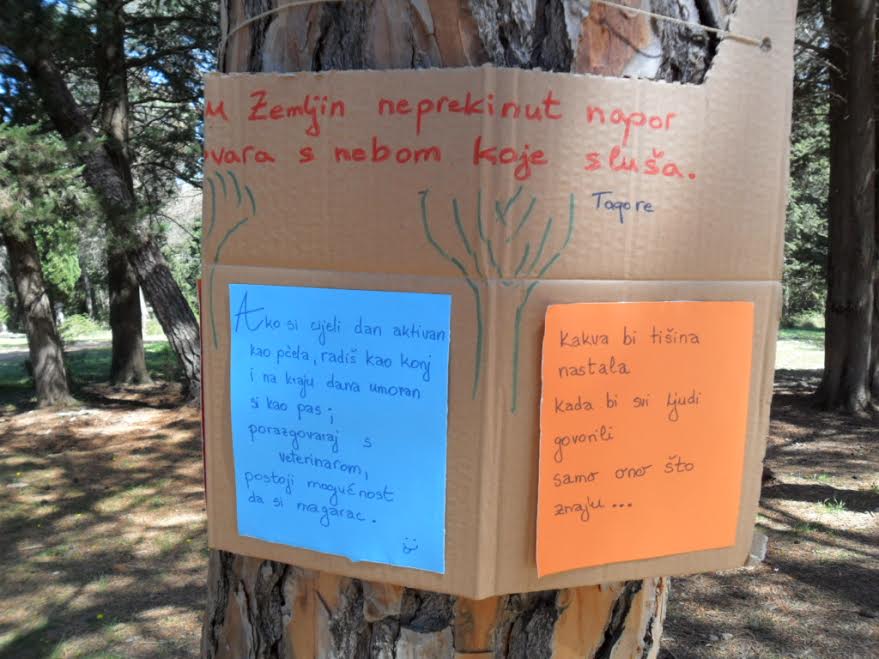 u Zemljin neprekinut napor
vara s nebom koje sluša.
Tagore
Ako si cijeli dan aktivan
kao pčela, radiš kao konj
i na kraju dana umoran
si kao pas;
porazgovaraj s
veterinarom,
postoji mogućnost
da si magarac.
Kakva bi tišina
nastala
kada bi svi ljudi
govorili
samo ono što
znaju...